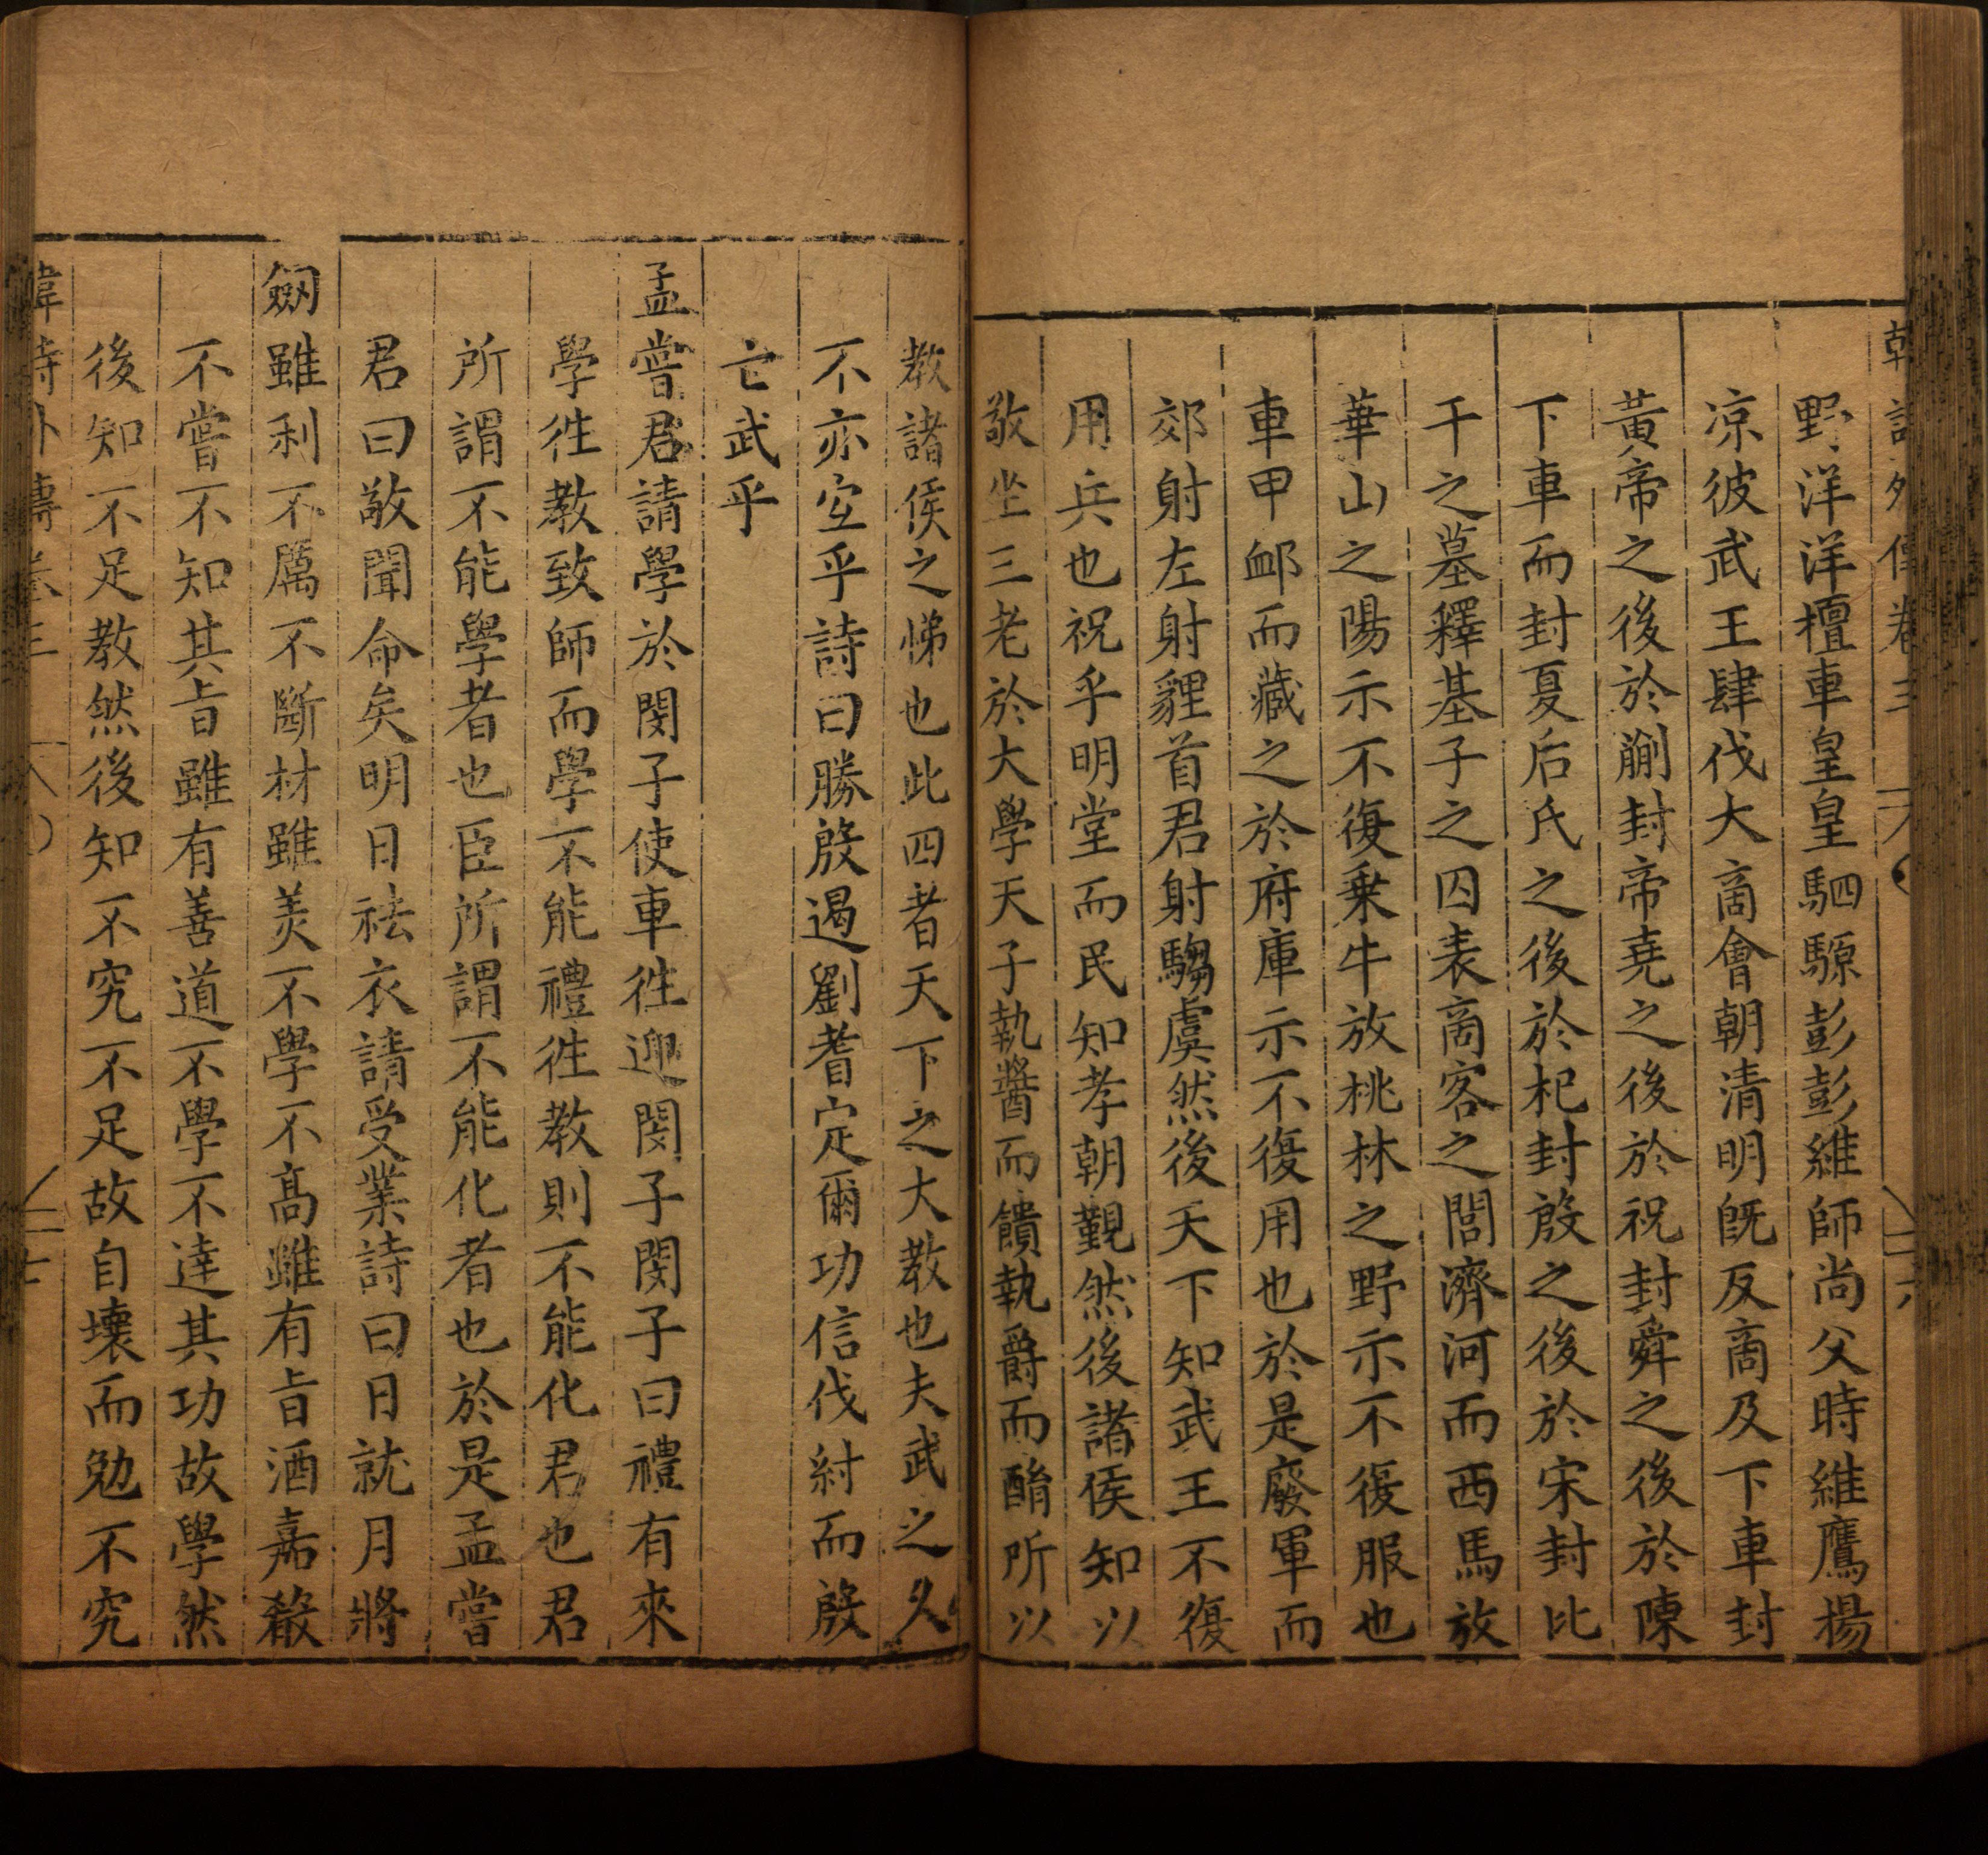 韓詩外傳卷三 六
野洋洋檀車皇皇駟騵彭彭維師尚父時維鷹揚
凉彼武王肆伐大商會朝清明旣反商及下車封
黃帝之後於蒯封帝堯之後於祝封舜之後於陳
下車而封夏后氏之後於杞封殷之後於宋封比
干之墓釋箕子之囚表商客之閭濟河而西馬放
華山之陽示不復乗牛放桃林之野示不復服也
車甲衅而藏之於府庫示不復用也於是廢軍而
郊射左射貍首君射騶虞然後天下知武王不復
用兵也祝乎明堂而民知孝朝覲然後諸侯知以
敬坐三老於大學天子執醬而饋執爵而酳所以
教諸侯之悌也此四者天下之大教也夫武之久
不亦宐乎詩曰勝殷遏劉耆定爾功信伐紂而殷
亡武乎
孟嘗君請學於閔子使車徃迎閔子閔子曰禮有來
學徃教致師而學不能禮徃教則不能化君也君
所謂不能學者也臣所謂不能化者也於是孟嘗
君曰敬聞命矣明日袪衣請受業詩曰日就月將
劒雖利不厲不斷材雖美不學不高雖有旨酒嘉殽
不嘗不知其旨雖有善道不學不達其功故學然
後知不足教然後知不究不足故自壞而勉不究
韓詩外傳卷三 六